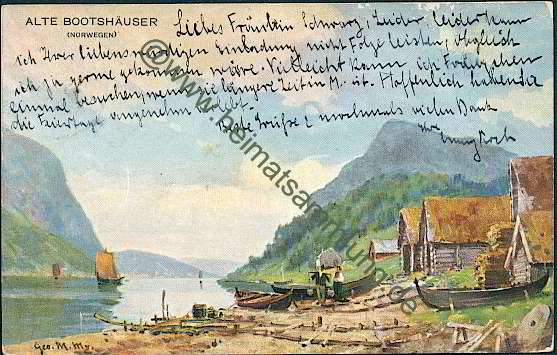 ALTE BOOTSHÄUSER
(NORWEGEN)
Liebes Fräulein Schwarz, Leider leider kann
ich Ihrer liebenswürdigen Einladung nicht Folge leisten, obgleich
ich ja gerne gekommen wäre. Vielleicht kann ich Fräulein
einmal besuchen, wenn sie längere Zeit in M. ist. Hoffentlich haben Sie
die Feiertage angenehm verlebt.
Beste Grüße & nochmals vielen Dank
Ihre
Emmy
Geo. M. My.
© www.heimatsammlung.de